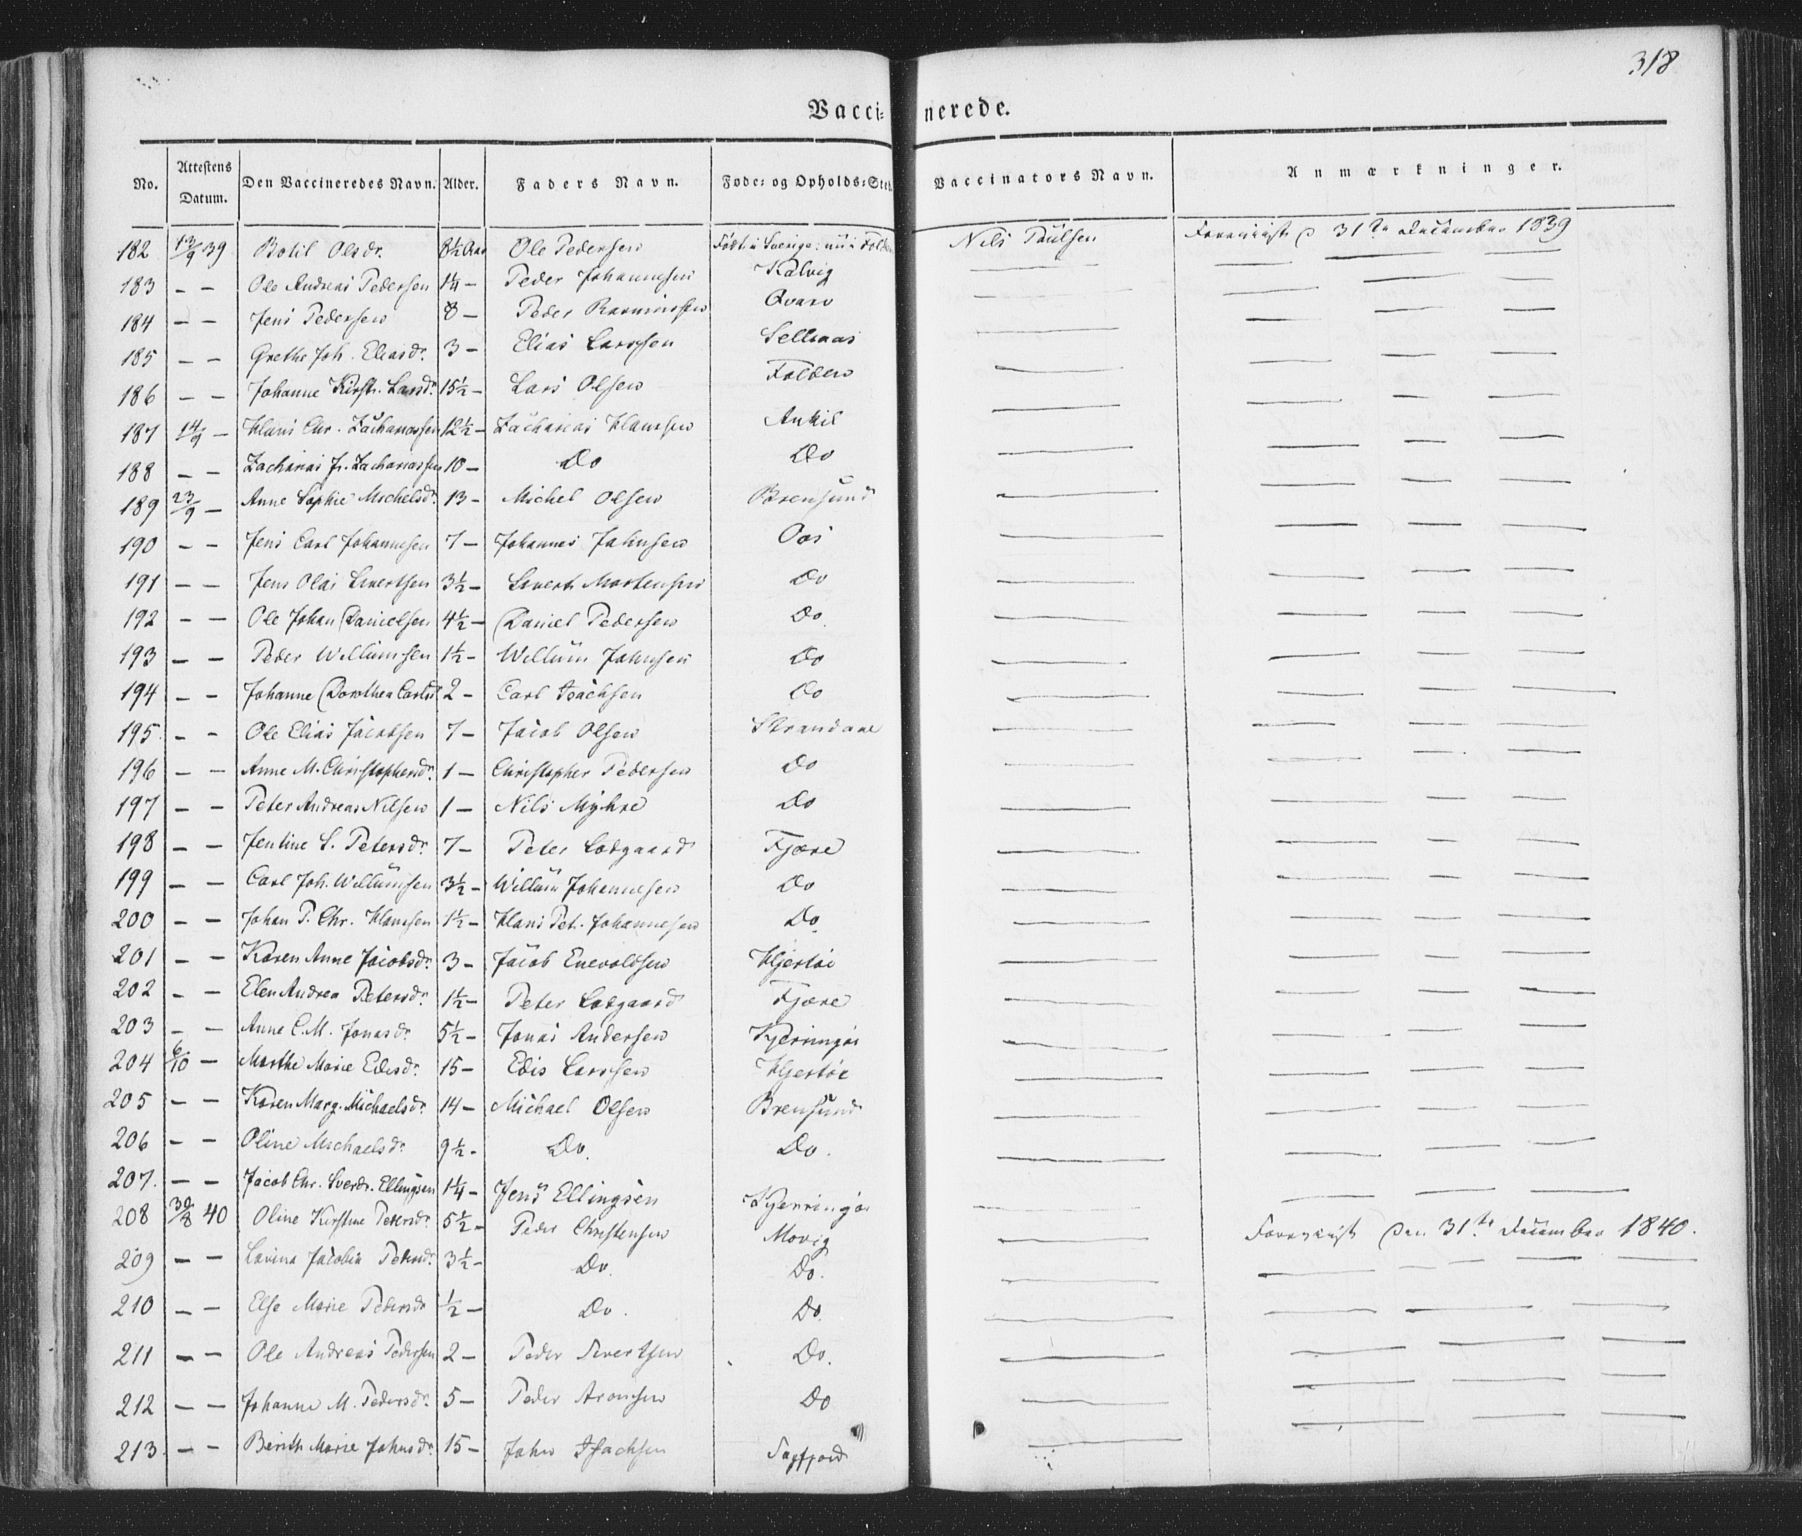 318
Vacci= nerede.
No. Attestens Datum. Den Vaccineredes Navn. Alder. Faders Navn. Føde= og Opholds=Sted Vaccinators Navn. Anmærkninger.
182 13/9 39 Bolil Olsdr. 8½ Aar Ole Pedersen Født i Sverige: nu i Folden Nils Paulsen Foreviist d 31te December 1839
183 — — Ole Andreas Pedersen 1¼ — Peder Johannesen Kalvig — — — —
184 — — Jens Pedersen 8 — Peder Rasmussen — — — —
185 — — Grethe Joh. Eliasdr. 3 — Elias Larssen Sellnaas — — — —
186 — — Johanne Kirst. Larsdr. 15½ — Lars Olsen Folden — — — —
187 14/9 — Hans Chr. Zachariassen 12½ — Zacharias Hanssen Ankil — — — —
188 — — Zacharias Zachariassen 10 — Do Do — — — —
189 23/9 — Anne Sophie Michelsdr. 13 — Michel Olsen Brensund — — — —
190 — — Jens Carl Johannesen 7 — Johannes Johnsen Oos — — — —
191 — — Jens Olai Sivertsen 3½ — Sivert Mortensen Do — — — —
192 — — Ole Johan Danielsen 4½ — Daniel Pedersen Do. — — — —
193 — — Peder Willumsen 1½ — Willum Johnsen Do — — — —
194 — — Johanne Dorothea Carlsd 2 — Carl Isachsen Do — — — —
195. — — Ole Elias Jacobsen 7 — Jacob Olsen — — — —
196 — — Anne M. Christophersdr. 1 — Christopher Pedersen Do — — —
197 — — Peter Andreas Nilsen 1 — Nils Myhre Do — — — —
198 — — Jentine S. Petersdr. 7 — Peter Lodgaard Fjære — — — —
199 — — Carl Joh. Willumsen 3½ — Willum Johannesen Do — — — —
200 — — Johan P. Chr. Hanssen 1½ — Hans Pet. Johannesen Do. — — — —
201 — — Karen Anne Jacobsdr. 3 — Jacob Enevoldsen Hjertøe — — — —
202 — — Elen Andrea Petersdr. 1½ — Peter Lodgaard Fjære — — — —
203 — — Anne C. M. Jonasdr. 5½ — Jonas Andersen Kjerringøe — — — —
204 6/10 — Marthe Marie Edisdr. 15 — Edis Larssen Hjertøe — — — —
205 — — Karen Marg. Michaelsdr. 14 — Michael Olsen Brensund — — — —
206 — — Oline Michaelsdr 9½ — Do. Do. — — — —
207. — — Jacob Chr. Sverdr. Ellingsen 1¼ — Jens Ellingsen Kjerringøe — — — —
208 30/8 40 Oline Kirstine Pedersdr. 5½ — Peder Christensen Movig — Foreviist den 31te December 1840.
209 — — Lavina Jacobia Pedersdr. 3½ — Do. Do. — — — — —
210 — — Else Marie Pedersdr ½ — Do. Do. — — — —
211 — — Ole Andreas Pedersen 2 — Peder Sivertsen Do. — — — —
212 — — Johanne M. Pedersdr. 5 — Peder Aronsen Do — — — —
213. — — Berith Marie Johnsdr. 15 — John Isachsen Sagfjord — — — —